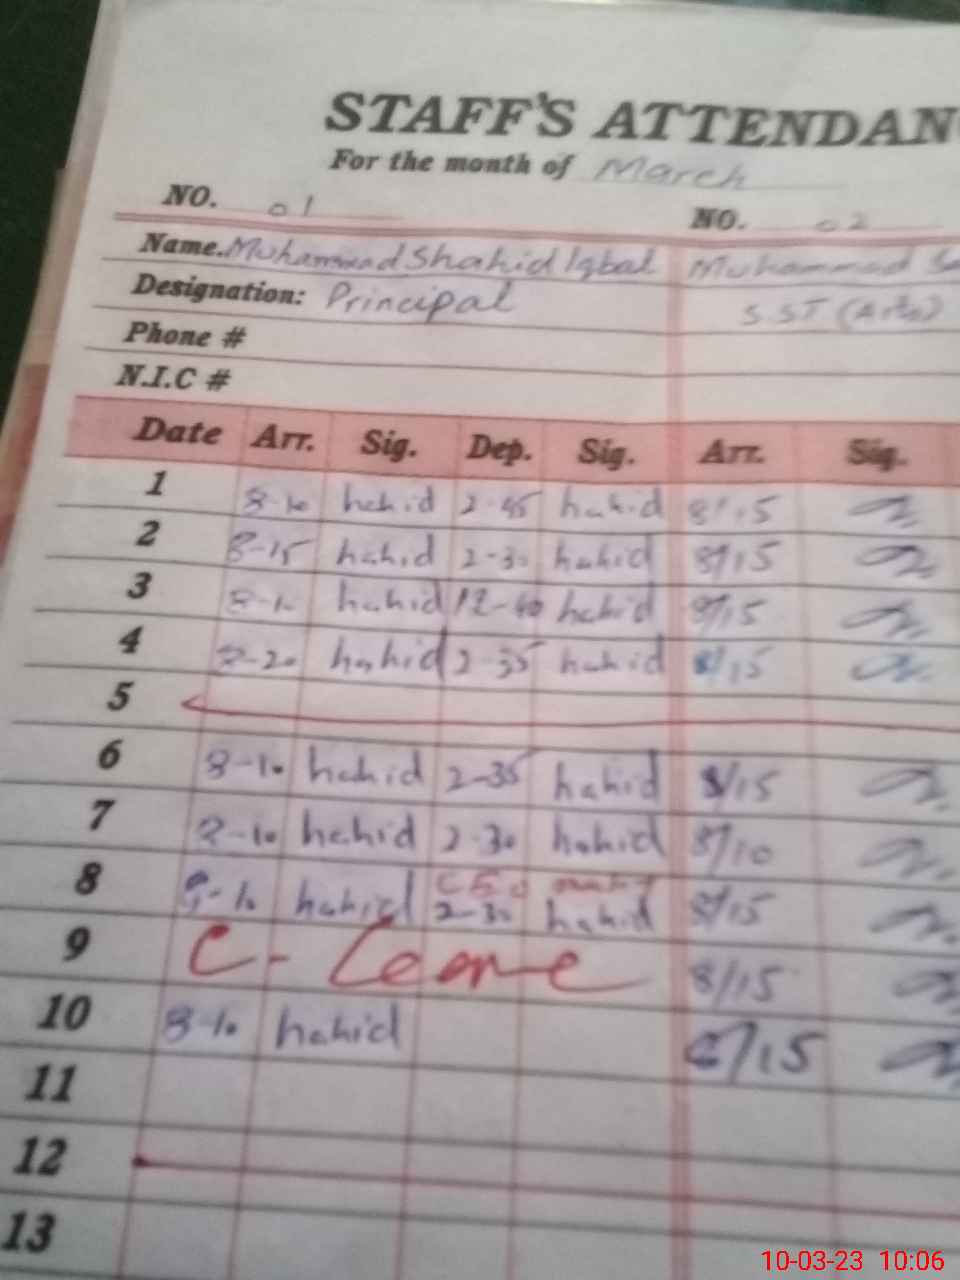 STAFF'S ATTENDANC
For the month of March
NO. 01 NO. 02
Name. Muhammad Shahid Iqbal Muhammad Sa
Designation: Principal S.ST (Arts)
Phone #
N.I.C #
Date Arr. Sig. Dep. Sig. Arr. Sig.
1 8-10 hahid 2-45 hahid 8/15
2 8-15 hahid 2-30 hahid 8/15
3 8-10 hahid 12-40 hahid 8/15
4 8-20 hahid 2-35 hahid 8/15
5
6 8-10 hahid 2-35 hahid 8/15
7 8-10 hahid 2-30 hahid 8/10
8 8-10 hahid 2-30 hahid 8/15
9 C- Leave 8/15
10 8-10 hahid 8/15
11
12
13
10-03-23 10:06